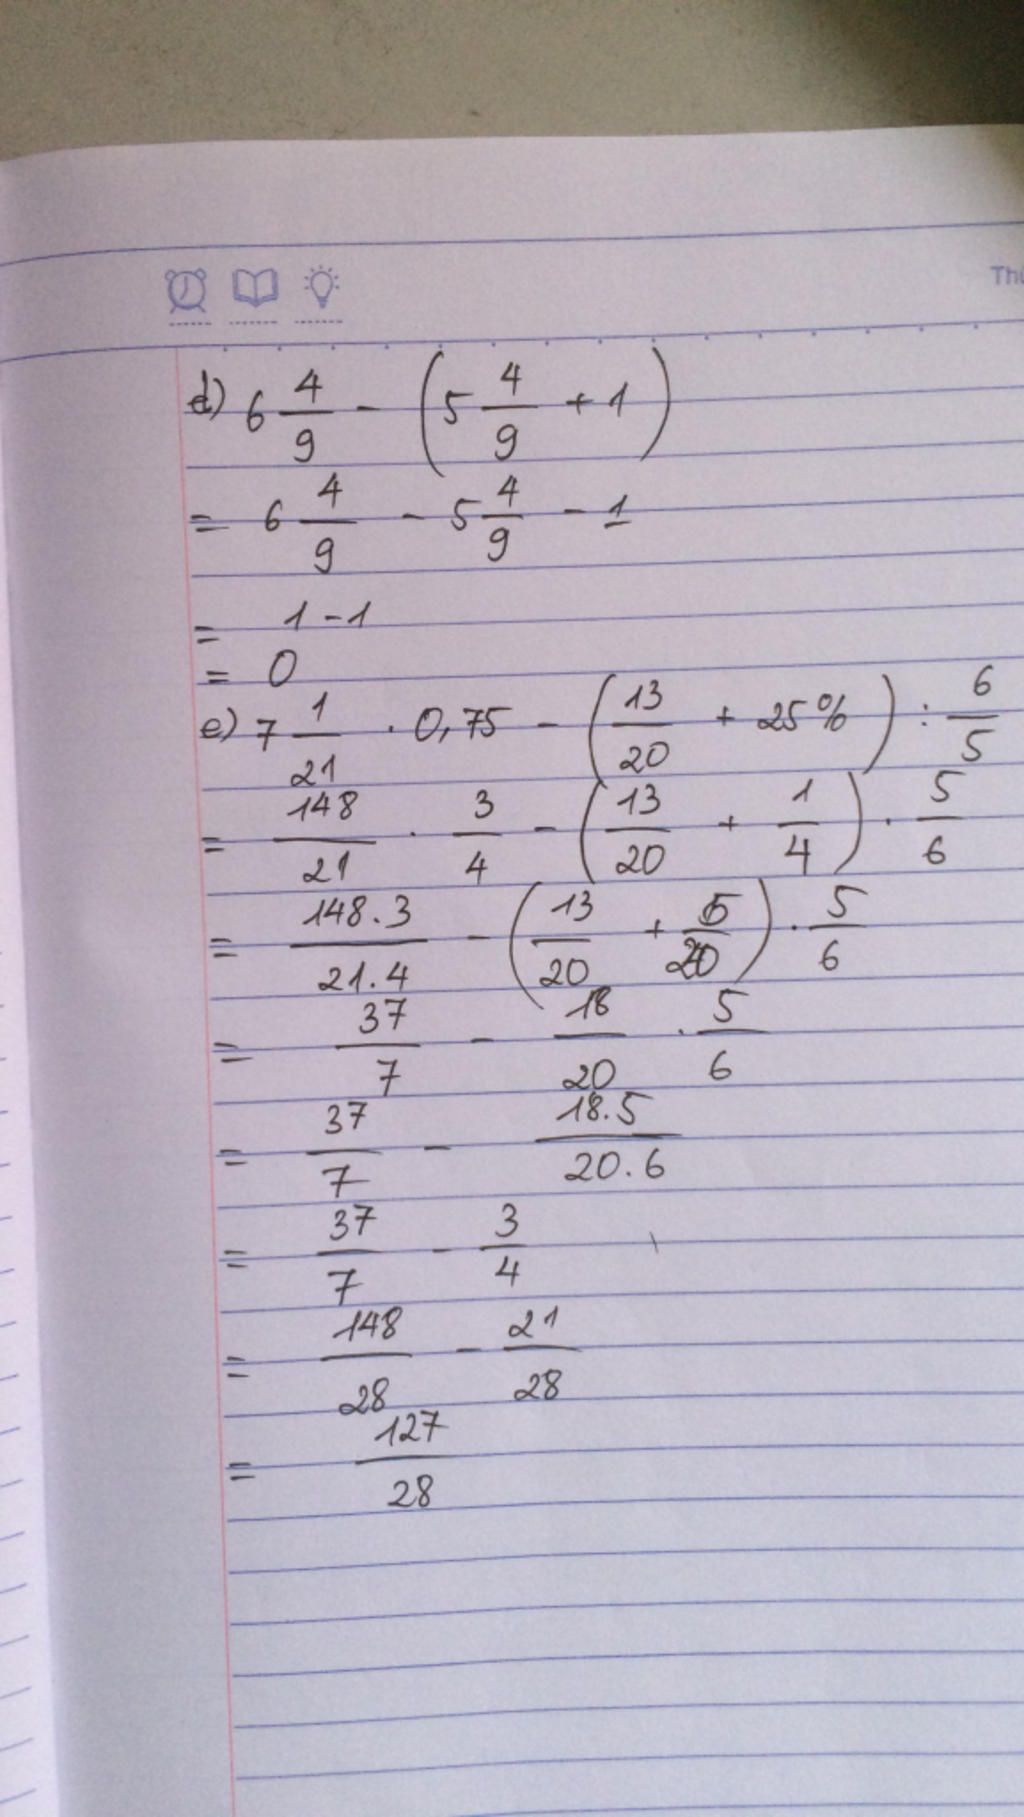 Thứ
d) 6 4/9 - (5 4/9 + 1)
= 6 4/9 - 5 4/9 - 1
= 1 - 1
= 0
e) 7 1/21 . 0,75 - (13/20 + 25%) : 6/5
= 148/21 . 3/4 - (13/20 + 1/4) . 5/6
= 148.3/21.4 - (13/20 + 5/20) . 5/6
= 37/7 - 18/20 . 5/6
= 37/7 - 18.5/20.6
= 37/7 - 3/4
= 148/28 - 21/28
= 127/28